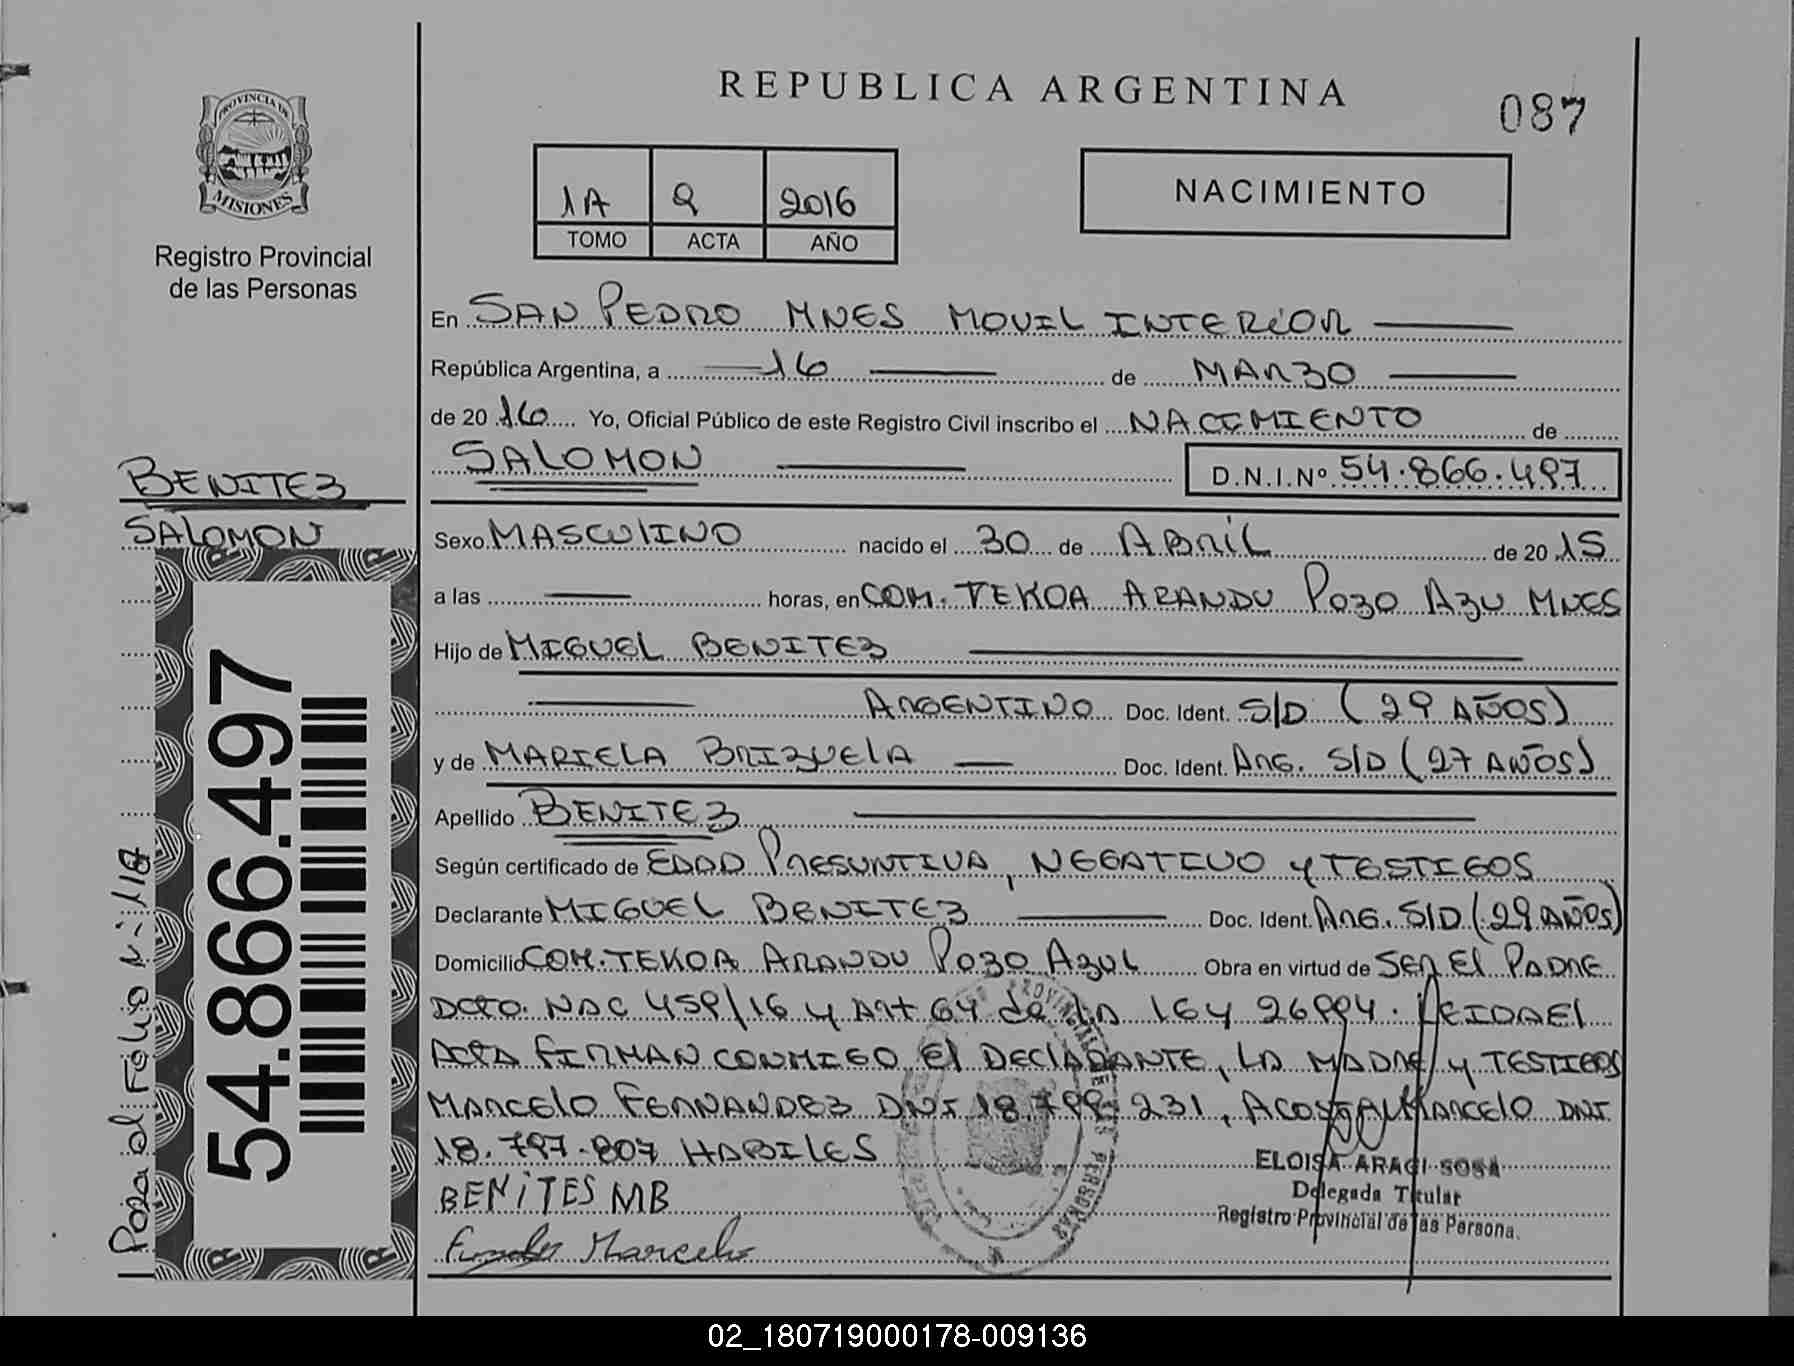 REPUBLICA ARGENTINA
087
PROVINCIA DE
MISIONES
Registro Provincial
de las Personas
1A 2016
TOMO ACTA AÑO
NACIMIENTO
En SAN PEDRO MNES MOVIL INTERIOR
República Argentina, a 16 de MARZO
de 20 16 Yo, Oficial Público de este Registro Civil inscribo el NACIMIENTO de
SALOMON
D.N.I.Nº 54.866.497
BENITEZ
SALOMON
Sexo MASCULINO nacido el 30 de ABRIL de 20 15
a las horas, en COM. TEKOA ARANDU POZO AZU MNES
Hijo de MIGUEL BENITEZ
ARGENTINO Doc. Ident. S/D (29 AÑOS)
y de MARIELA BRIZUELA Doc. Ident. ARG. S/D (27 AÑOS)
Apellido BENITEZ
Según certificado de EDAD PRESUNTIVA, NEGATIVO y TESTIGOS
Declarante MIGUEL BENITEZ Doc. Ident. ARG. S/D (29 AÑOS)
Domicilio COM. TEKOA ARANDU POZO AZUL Obra en virtud de SER El PADRE
DCTO. NAC 459/16 y ART 64 de LA LEY 26994. LEIDA El
ACTA FIRMAN CONMIGO El DEClARANTE, LA MADRE y TESTIGOS
MARCELO FERNANDEZ DNI 18.799.231, ACOSTA MARCELO DNI
18.797.807 HABILES
BENITES MB
Marcelo
ELOISA ARACI SOSA
Delegada Titular
Registro Provincial de las Persona.
54.866.497
Pasa al Folio N: 118
02_180719000178-009136